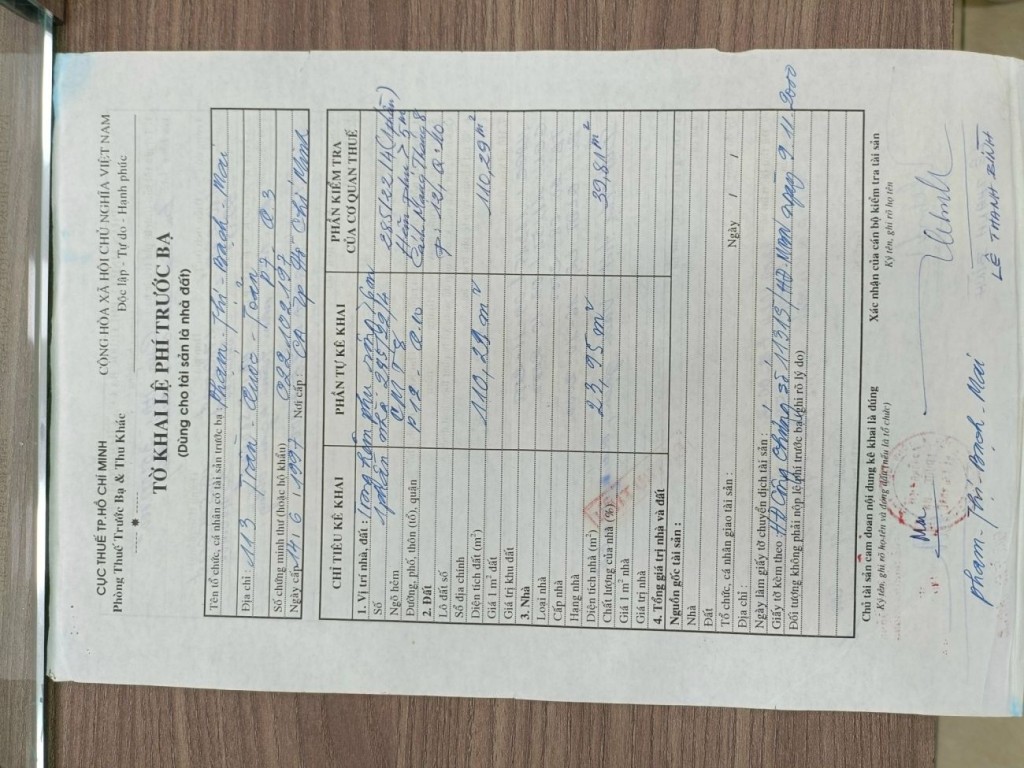 CỤC THUẾ TP.HỒ CHÍ MINH
Phòng Thuế Trước Bạ & Thu Khác
CỘNG HÒA XÃ HỘI CHỦ NGHĨA VIỆT NAM
Độc lập - Tự do - Hạnh phúc
TỜ KHAI LỆ PHÍ TRƯỚC BẠ
(Dùng cho tài sản là nhà đất)
Tên tổ chức, cá nhân có tài sản trước bạ : Phạm - Thị - Bạch - Mai
Địa chỉ : 113 Trần - Quốc - Toản P7 Q3
Số chứng minh thư (hoặc hộ khẩu) 022102197
Ngày cấp 14 / 6 / 1997 Nơi cấp : CA Tp Hồ Chí Minh
CHỈ TIÊU KÊ KHAI PHẦN TỰ KÊ KHAI PHẦN KIỂM TRA CỦA CƠ QUAN THUẾ
1. Vị trí nhà, đất : trong hẻm
Số 1 phần nhà 285/22/4 285/22/4 (1 phần)
Ngõ hẻm CMT8 5m
Đường, phố, thôn (tổ), quận P12 Q.10 Cách Mạng Tháng 8
2. Đất P. 12, Q. 10
Lô đất số
Sổ địa chính
Diện tích đất (m²) 110,29 m² 110,29 m²
Giá 1 m² đất
Giá trị khu đất
3. Nhà
Loại nhà
Cấp nhà
Hạng nhà
Diện tích nhà (m²) 23,95 m² 39,81 m²
Chất lượng của nhà (%)
Giá 1 m² nhà
Giá trị nhà
4. Tổng giá trị nhà và đất
Nguồn gốc tài sản :
Nhà
Đất
Tổ chức, cá nhân giao tài sản :
Địa chỉ : Ngày / /
Ngày làm giấy tờ chuyển dịch tài sản :
Giấy tờ kèm theo HĐ Công chứng số 11313/HĐ MBN ngày 9.11.2000
Đối tượng không phải nộp lệ phí trước bạ (ghi rõ lý do)
Chủ tài sản cam đoan nội dung kê khai là đúng
Ký tên, ghi rõ họ tên và đóng dấu (nếu là tổ chức)
Xác nhận của cán bộ kiểm tra tài sản
Ký tên, ghi rõ họ tên
Mai
Phạm - Thị - Bạch - Mai
LÊ THANH BÌNH